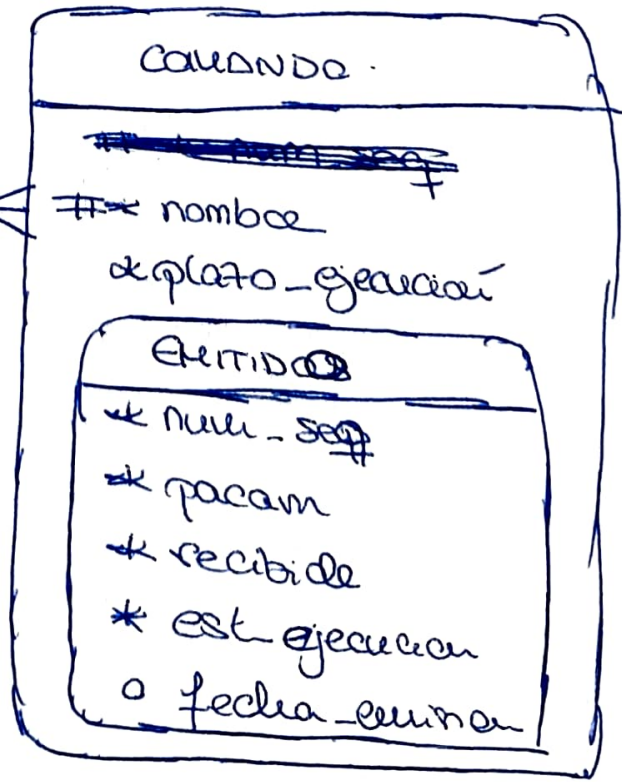 COMANDO.
#* nombre
* plazo_ejecución
EMITIDO
* num_seq
* param
* recibido
* est_ejecucion
o fecha_emision